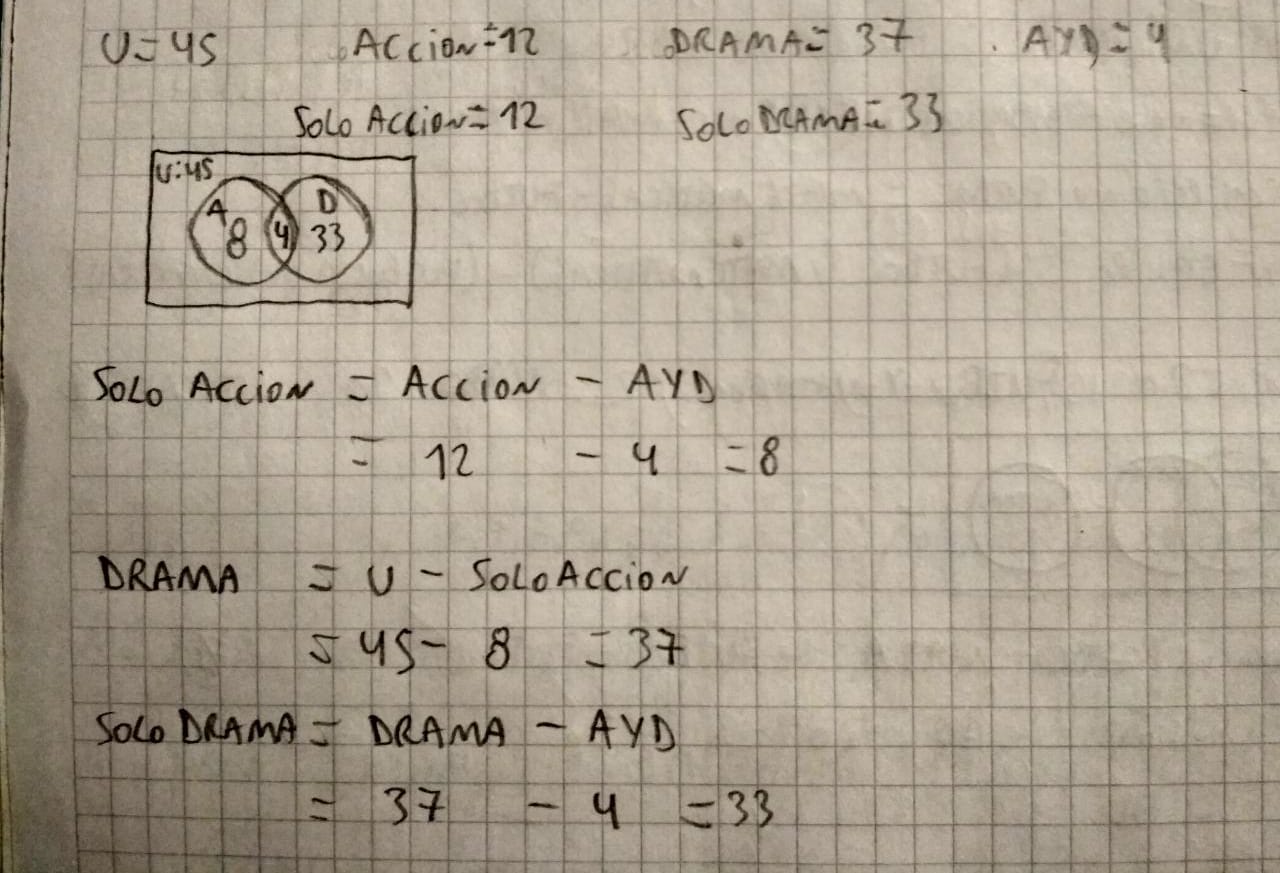 U=45 ACCION=12 DRAMA=37 AYD=4
SOLO ACCION=12 SOLO DRAMA=33
U=45
A D
8 4 33
SOLO ACCION = ACCION - AYD
= 12 - 4 =8
DRAMA = U - SOLO ACCION
= 45- 8 =37
SOLO DRAMA= DRAMA - AYD
= 37 - 4 =33